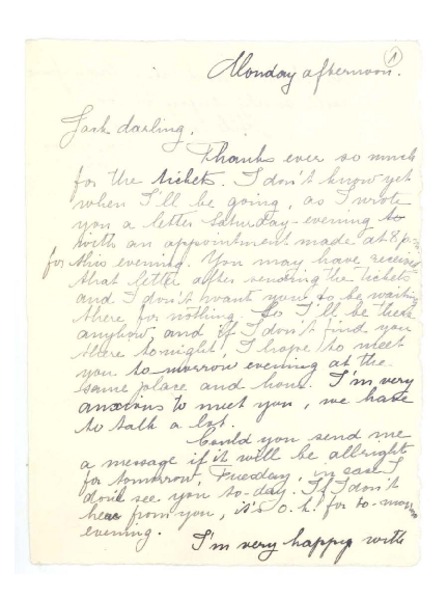 1
Monday afternoon.
Jack darling,
Thanks ever so much
for the tickets. I don't know yet
when I'll be going, as I wrote
you a letter Saturday-evening to
with an appointment made at 8 p.m.
for this evening. You may have received
that letter after sending the tickets
and I don't want you to be waiting
there for nothing. So I'll be there
anyhow, and if I don't find you
there tonight, I hope to meet
you to-morrow evening at the
same place and hour. I'm very
anxious to meet you, we have
to talk a lot.
Could you send me
a message if it will be allright
for tomorrow, Tuesday, in case I
don't see you to-day. If I don't
hear from you, it's o.k. for to-morrow
evening.
I'm very happy with